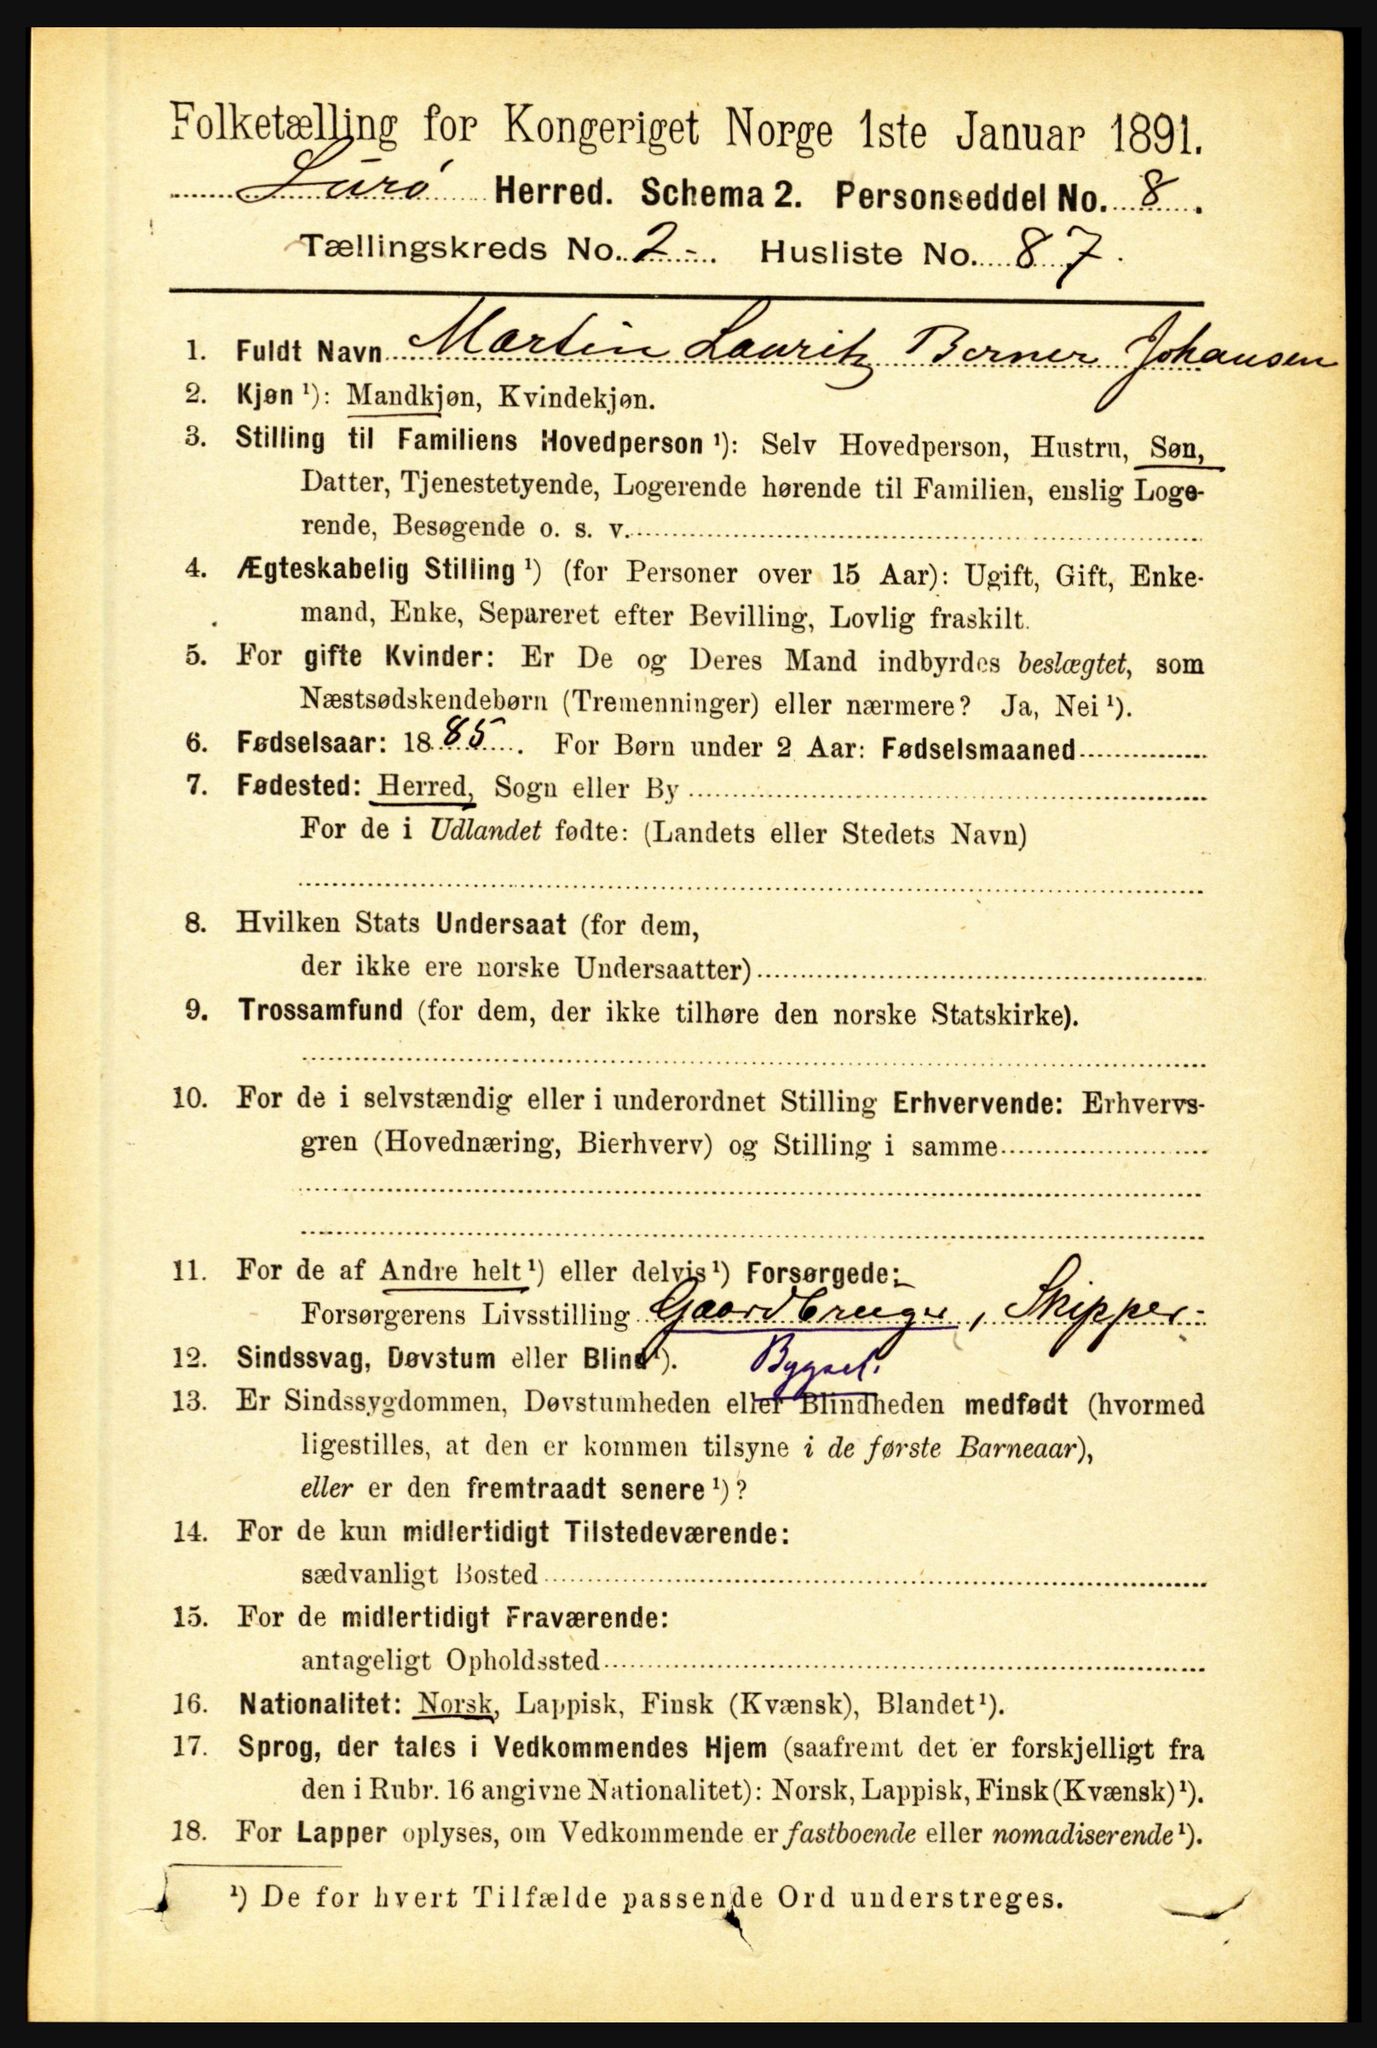 Folketælling for Kongeriget Norge 1ste Januar 1891.
Lurø Herred. Schema 2. Personseddel No. 8.
Tællingskreds No. 2. Husliste No. 87.
1. Fuldt Navn Martin Lauritz Berner Johansen
2. Kjøn¹): Mandkjøn, Kvindekjøn.
3. Stilling til Familiens Hovedperson¹): Selv Hovedperson, Hustru, Søn,
Datter, Tjenestetyende, Logerende hørende til Familien, enslig Loge-
rende, Besøgende o. s. v.
4. Ægteskabelig Stilling¹) (for Personer over 15 Aar): Ugift, Gift, Enke-
mand, Enke, Separeret efter Bevilling, Lovlig fraskilt.
5. For gifte Kvinder: Er De og Deres Mand indbyrdes beslægtet, som
Næstsødskendebørn (Tremenninger) eller nærmere? Ja, Nei¹).
6. Fødselsaar: 1885. For Børn under 2 Aar: Fødselsmaaned
7. Fødested: Herred, Sogn eller By
For de i Udlandet fødte: (Landets eller Stedets Navn)
8. Hvilken Stats Undersaat (for dem,
der ikke ere norske Undersaatter)
9. Trossamfund (for dem, der ikke tilhøre den norske Statskirke).
10. For de i selvstændig eller i underordnet Stilling Erhvervende: Erhvervs-
gren (Hovednæring, Bierhverv) og Stilling i samme
11. For de af Andre helt¹) eller delvis¹) Forsørgede:
Forsørgerens Livsstilling Gaardbruger, Skipper
12. Sindssvag, Døvstum eller Blind¹). Bygsel.
13. Er Sindssygdommen, Døvstumheden eller Blindheden medfødt (hvormed
ligestilles, at den er kommen tilsyne i de første Barneaar),
eller er den fremtraadt senere¹)?
14. For de kun midlertidigt Tilstedeværende:
sædvanligt Bosted
15. For de midlertidigt Fraværende:
antageligt Opholdssted
16. Nationalitet: Norsk, Lappisk, Finsk (Kvænsk), Blandet¹).
17. Sprog, der tales i Vedkommendes Hjem (saafremt det er forskjelligt fra
den i Rubr. 16 angivne Nationalitet): Norsk, Lappisk, Finsk (Kvænsk)¹).
18. For Lapper oplyses, om Vedkommende er fastboende eller nomadiserende¹).
¹) De for hvert Tilfælde passende Ord understreges.